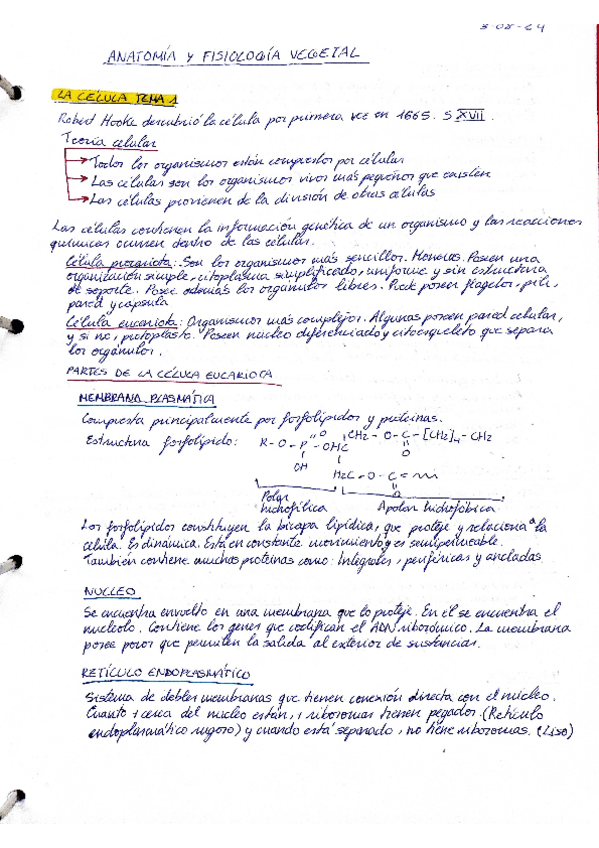 3-02-24
ANATOMÍA Y FISIOLOGÍA VEGETAL
LA CÉLULA TEMA 1
Robert Hooke descubrió la célula por primera vez en 1665. S XVII.
Teoría celular
Todos los organismos están compuestos por células
Las células son los organismos vivos más pequeños que existen
Las células provienen de la división de otras células
Las células contienen la información genética de un organismo y las reacciones
químicas ocurren dentro de las células.
Célula procariota: Son los organismos más sencillos. Moneras. Poseen una
organización simple, citoplasma simplificado, uniforme y sin estructura
de soporte. Posee además los orgánulos libres. Puede poseer flagelos, pili,
pared y cápsula
Célula eucariota: Organismos más complejos. Algunas poseen pared celular,
y si no, protoplasto. Poseen núcleo diferenciado y citoesqueleto que separa
los orgánulos.
PARTES DE LA CÉLULA EUCARIOTA
MEMBRANA PLASMÁTICA
Compuesta principalmente por fosfolípidos y proteínas.
Estructura fosfolípido: R-O-P-OHC CH2-O-C-[CH2]4-CH2
O
OH
O
H2C-O-C
O
Polar Apolar hidrofóbica
hidrofílica
Los fosfolípidos constituyen la bicapa lipídica, que proteje y relaciona a la
célula. Es dinámica. Está en constante movimiento y es semipermeable.
También contiene muchas proteínas como: Integrales, periféricas y ancladas.
NÚCLEO
Se encuentra envuelto en una membrana que lo proteje. En él se encuentra el
nucleolo. Contiene los genes que codifican el ADN ribosómico. La membrana
posee poros que permiten la salida al exterior de sustancias.
RETÍCULO ENDOPLASMÁTICO
Sistema de dobles membranas que tienen conexión directa con el núcleo.
Cuanto + cerca del núcleo están, + ribosomas tienen pegados. (Retículo
endoplasmático rugoso) y cuando está separado, no tiene ribosomas. (Liso)